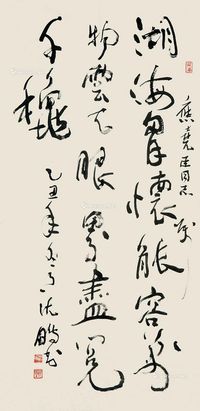 湖海胸怀能容万
物云天眼界尽览
千穐
乙丑年冬月沈鹏书
应尧臣同志